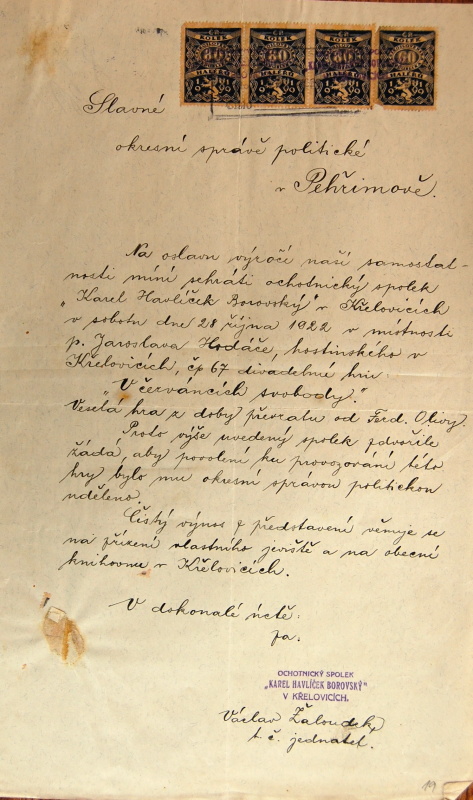 ČS KOLEK 80 HALÉŘŮ
ČS KOLEK 80 HALÉŘŮ
ČS KOLEK 80 HALÉŘŮ
ČS KOLEK 60 HALÉŘŮ
Slavné
okresní správě politické
v Pehřimově.
Na oslavu výročí naší samostat-
nosti míní sehráti ochotnický spolek
„Karel Havlíček Borovský" v Křelovicích
v sobotu dne 28 října 1922 v místnosti
p. Jaroslava Hodáče, hostinského v
Křelovicích, čp 67 divadelné hru:
„V červáncích svobody."
Veselá hra z doby převratu od Ferd. Olivy.
Proto výše uvedený spolek zdvořile
žádá, aby povolení ku provozování této
hry bylo mu okresní správou politickou
uděleno.
Čistý výnos z představení věnuje se
na zřízení vlastního jeviště a na obecní
knihovnu v Křelovicích.
V dokonalé úctě:
za:
OCHOTNICKÝ SPOLEK
„KAREL HAVLÍČEK BOROVSKÝ"
V KŘELOVICÍCH.
Václav Žaloudek,
t. č. jednatel.
19